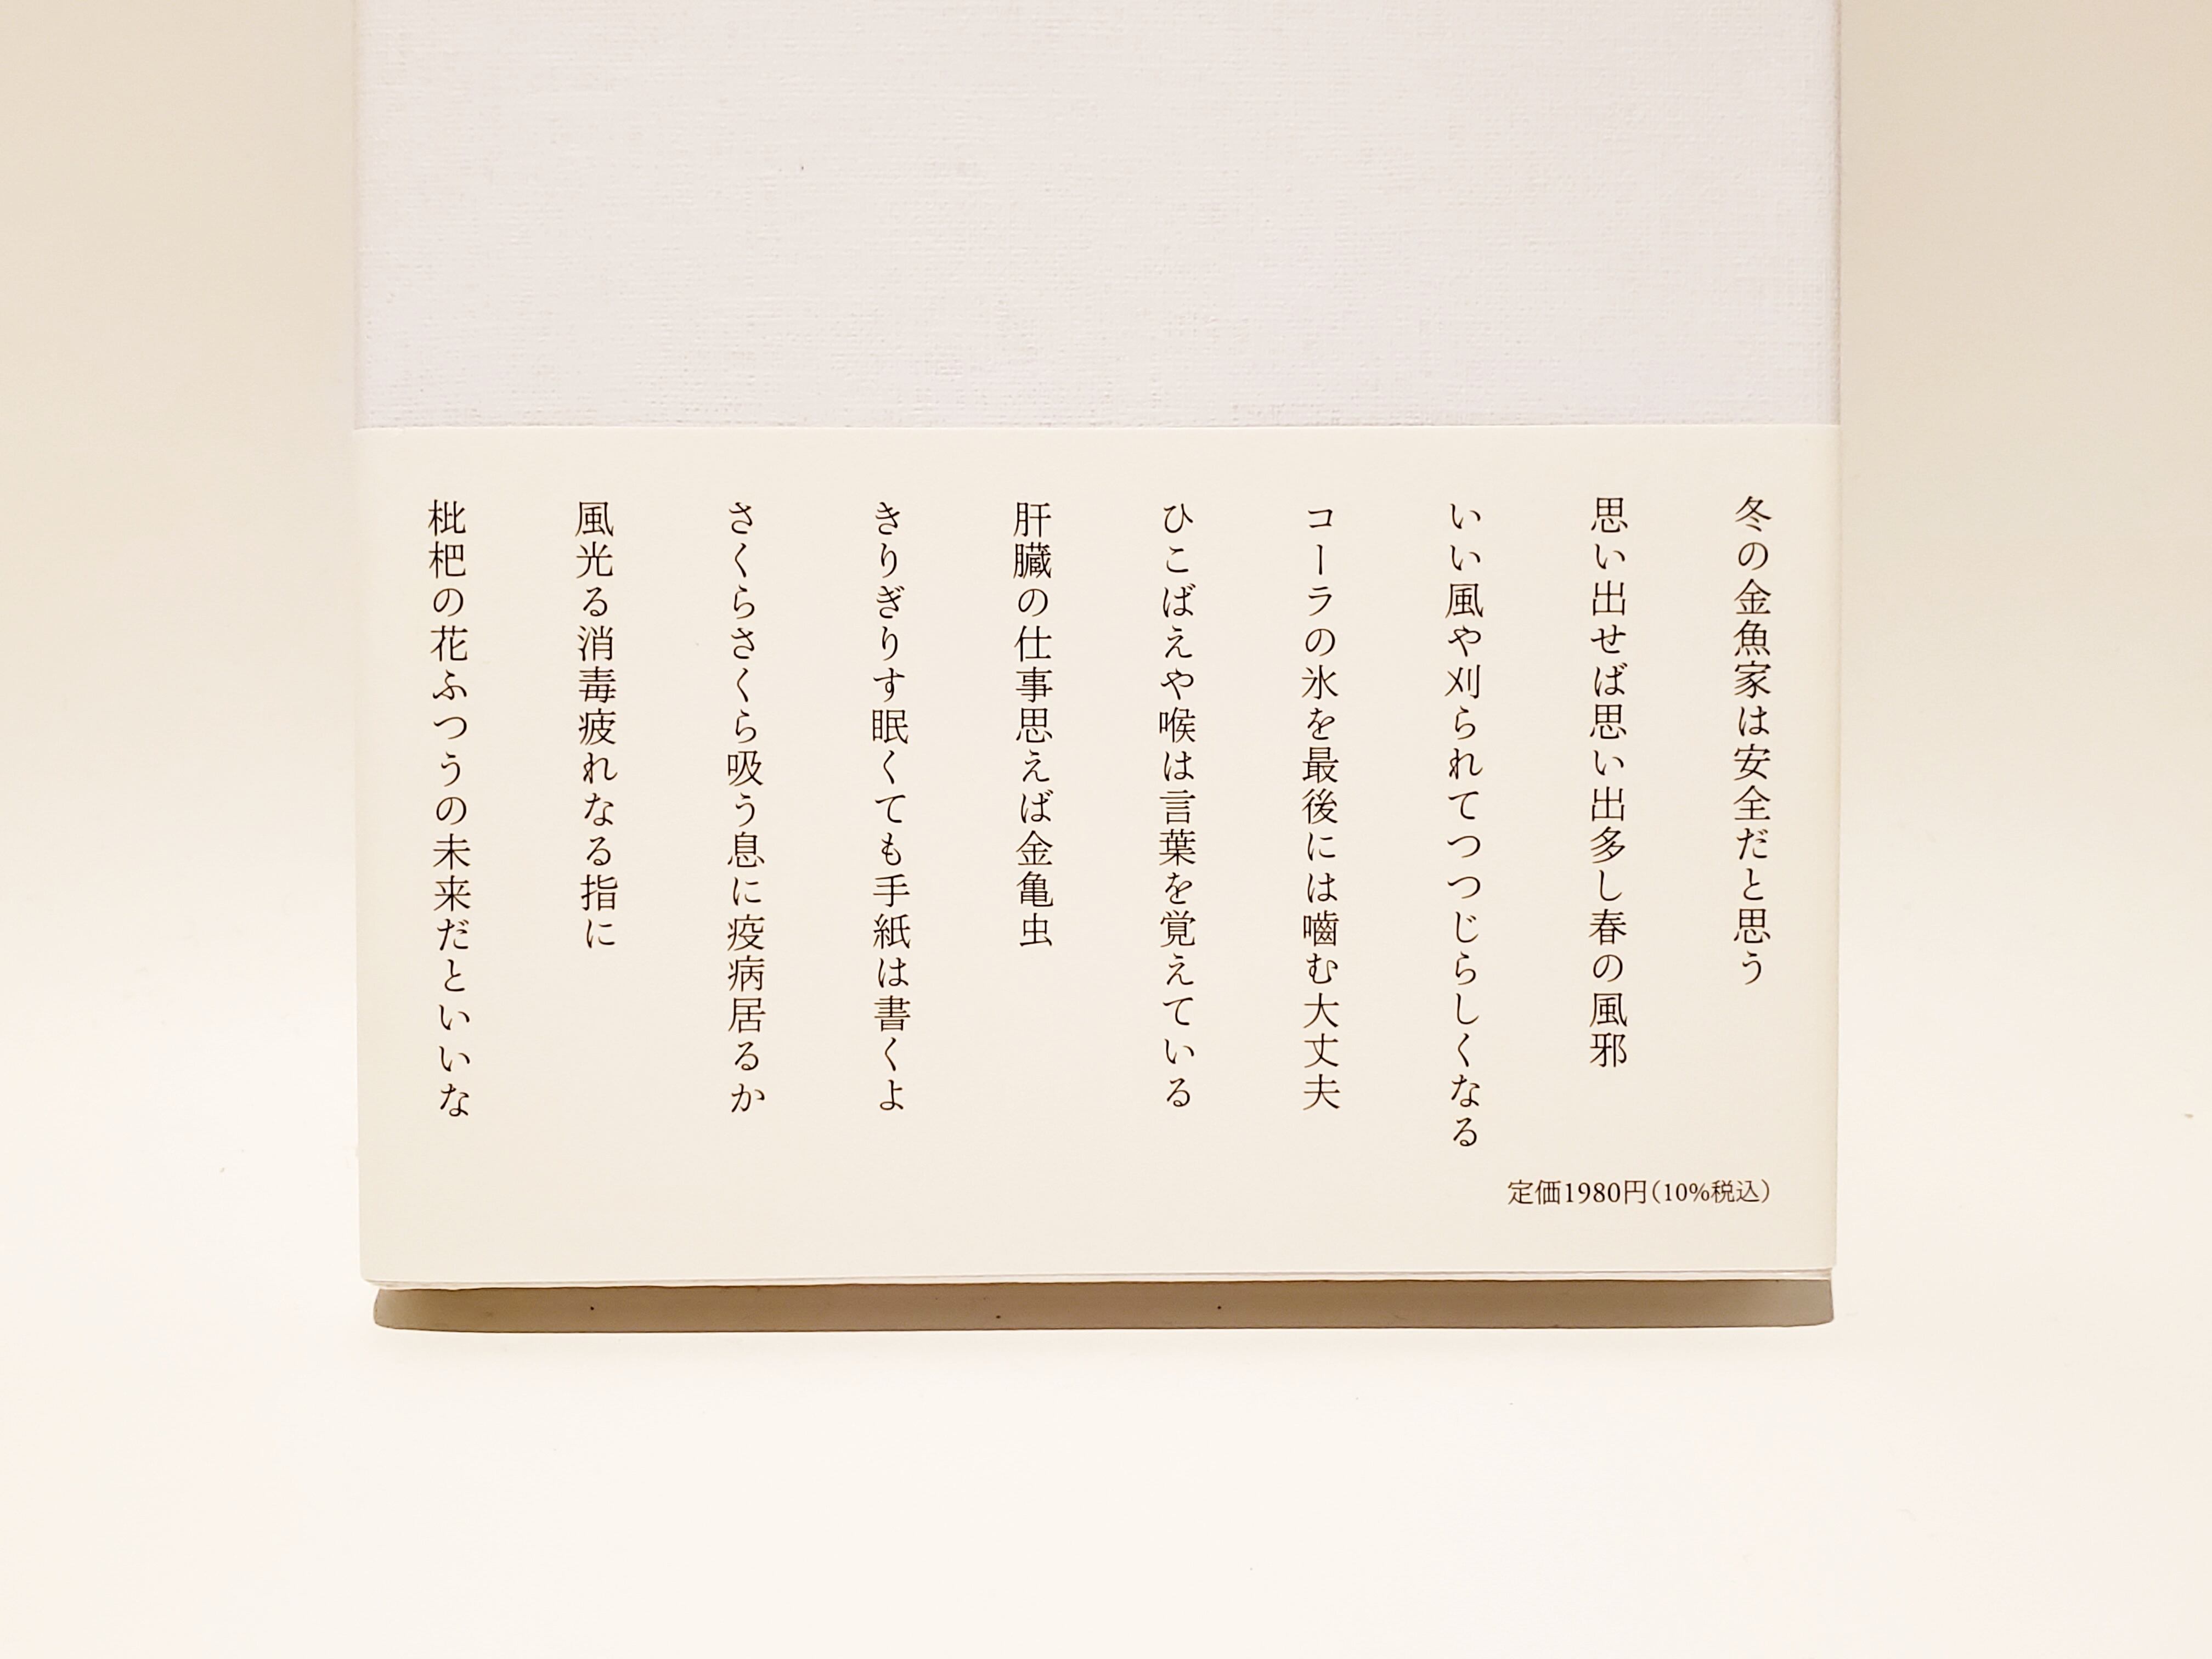 冬の金魚家は安全だと思う
思い出せば思い出多し春の風邪
いい風や刈られてつつじらしくなる
コーラの氷を最後には嚙む大丈夫
ひこばえや喉は言葉を覚えている
肝臓の仕事思えば金亀虫
きりぎりす眠くても手紙は書くよ
さくらさくら吸う息に疫病居るか
風光る消毒疲れなる指に
枇杷の花ふつうの未来だといいな
定価1980円（10%税込）